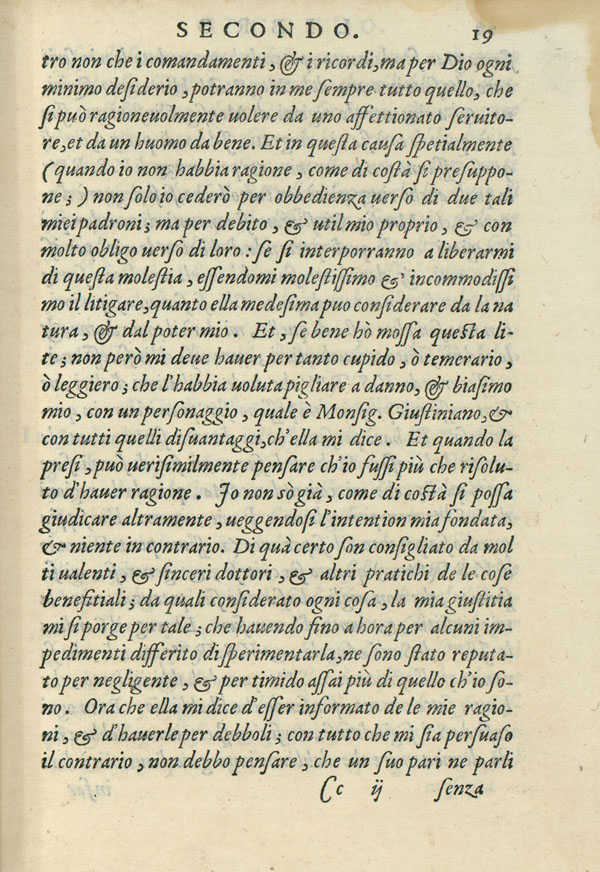 SECONDO. 19
tro non che i comandamenti, & i ricordi, ma per Dio ogni
minimo desiderio, potranno in me sempre tutto quello, che
si può ragioneuolmente uolere da uno affettionato seruito-
re, et da un huomo da bene. Et in questa causa spetialmente
(quando io non habbia ragione, come di costà si presuppo-
ne;) non solo io cederò per obbedienza uerso di due tali
miei padroni; ma per debito, & util mio proprio, & con
molto obligo uerso di loro: se si interporranno a liberarmi
di questa molestia, essendomi molestissimo & incommodissi
mo il litigare, quanto ella medesima puo considerare da la na
tura, & dal poter mio. Et, se bene hò mossa questa li-
te; non però mi deue hauer per tanto cupido, ò temerario,
ò leggiero; che l'habbia uoluta pigliare a danno, & biasimo
mio, con un personaggio, quale è Monsig. Giustiniano, &
con tutti quelli disuantaggi, ch'ella mi dice. Et quando la
presi, può uerisimilmente pensare ch'io fussi più che risolu-
to d'hauer ragione. Io non sò già, come di costà si possa
giudicare altramente, ueggendosi l'intention mia fondata,
& niente in contrario. Di quà certo son consigliato da mol
ti ualenti, & sinceri dottori, & altri pratichi de le cose
benefitiali; da quali considerato ogni cosa, la mia giustitia
mi si porge per tale; che hauendo fino a hora per alcuni im-
pedimenti differito di sperimentarla, ne sono stato reputa-
to per negligente, & per timido assai più di quello ch'io so-
no. Ora che ella mi dice d'esser informato de le mie ragio-
ni, & d'hauerle per debboli; con tutto che mi sia persuaso
il contrario, non debbo pensare, che un suo pari ne parli
Cc ij senza